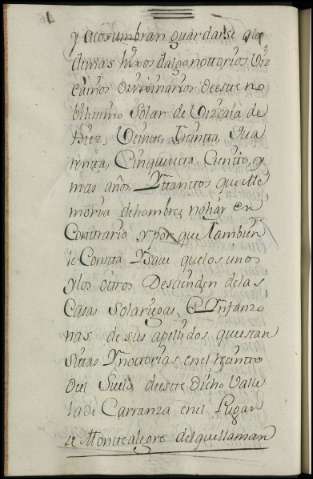 y acostumbran guardarse a los
demas hixosdalgo notorios Viz
cainos originarios de este no
bilisimo Solar de Vizcaia de
Diez, Veinte, Treinta, Qua
renta, Cinquenta, Ciento, y
mas años Y tantos que Me
moria de hombres no hay en
Contrario y por que tambien
le Consta Y save que los unos
y los otros Descienden de las
Casas Solariegas, e Ynfanzo
nas de sus apellidos que estan
sitas Y notorias en el
del Suelo de este Dicho Valle
de Carranza en el Lugar
de Montealegre del que llaman